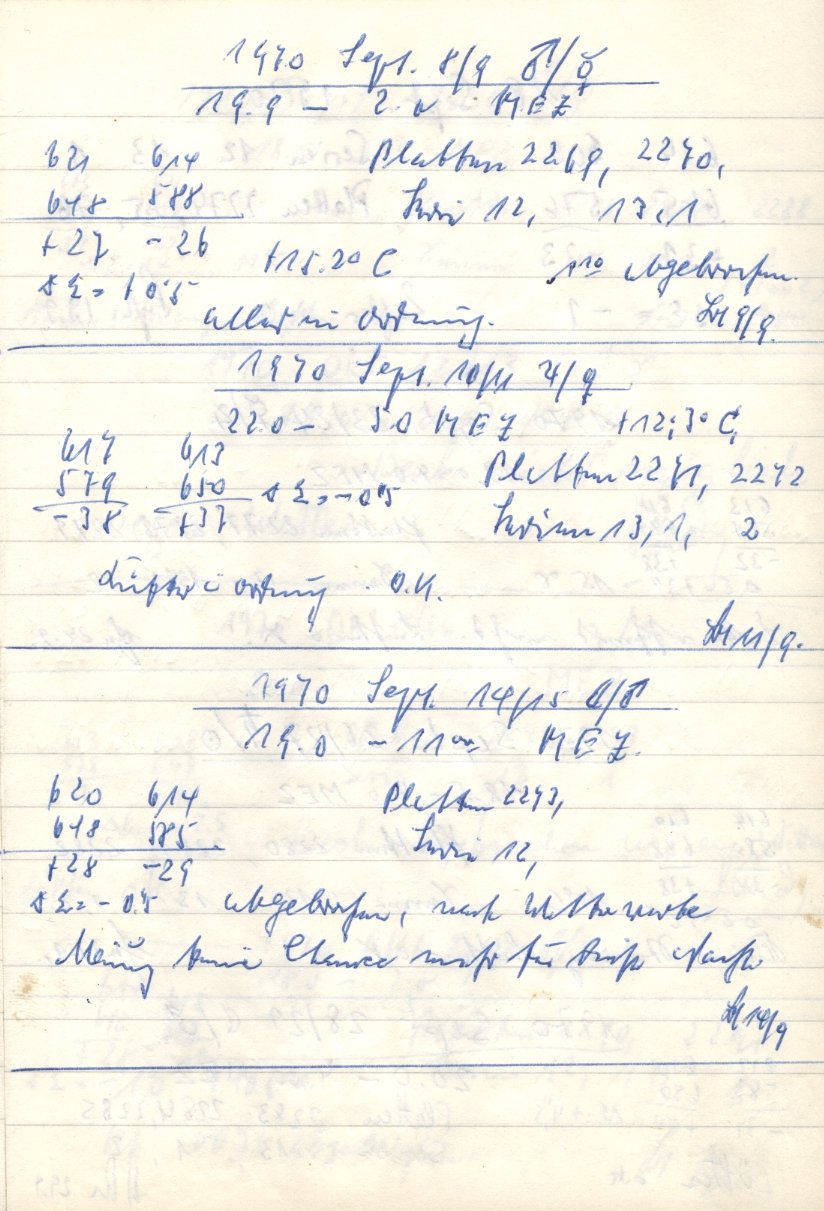 1970 Sept. 8/9 ♂/☿
19.9 – 2.0 MEZ
621 614 Platten 2269, 2270,
648 588 Serie 12, 13, 1
+27 -26 +15.2° C abgebrochen.
ΔΣ = +0.5
alles in Ordnung. 9/9.
1970 Sept. 10/11 ♃/♀
22.0 – 5.0 MEZ +12,3° C,
617 613 Platten 2271, 2272
579 650 ΔΣ = -0.5
-38 +37 Serien 13, 1, 2
Lüfter i Ordnung. O.K.
11/9.
1970 Sept. 14/15 ☾/♂
19.0 – MEZ.
620 614 Platten 2273,
648 585 Serie 12,
+28 -29
ΔΣ = -0.5 abgebrochen, nach Wetterwarte
Meinung keine Chance mehr für diese Nacht
14/9